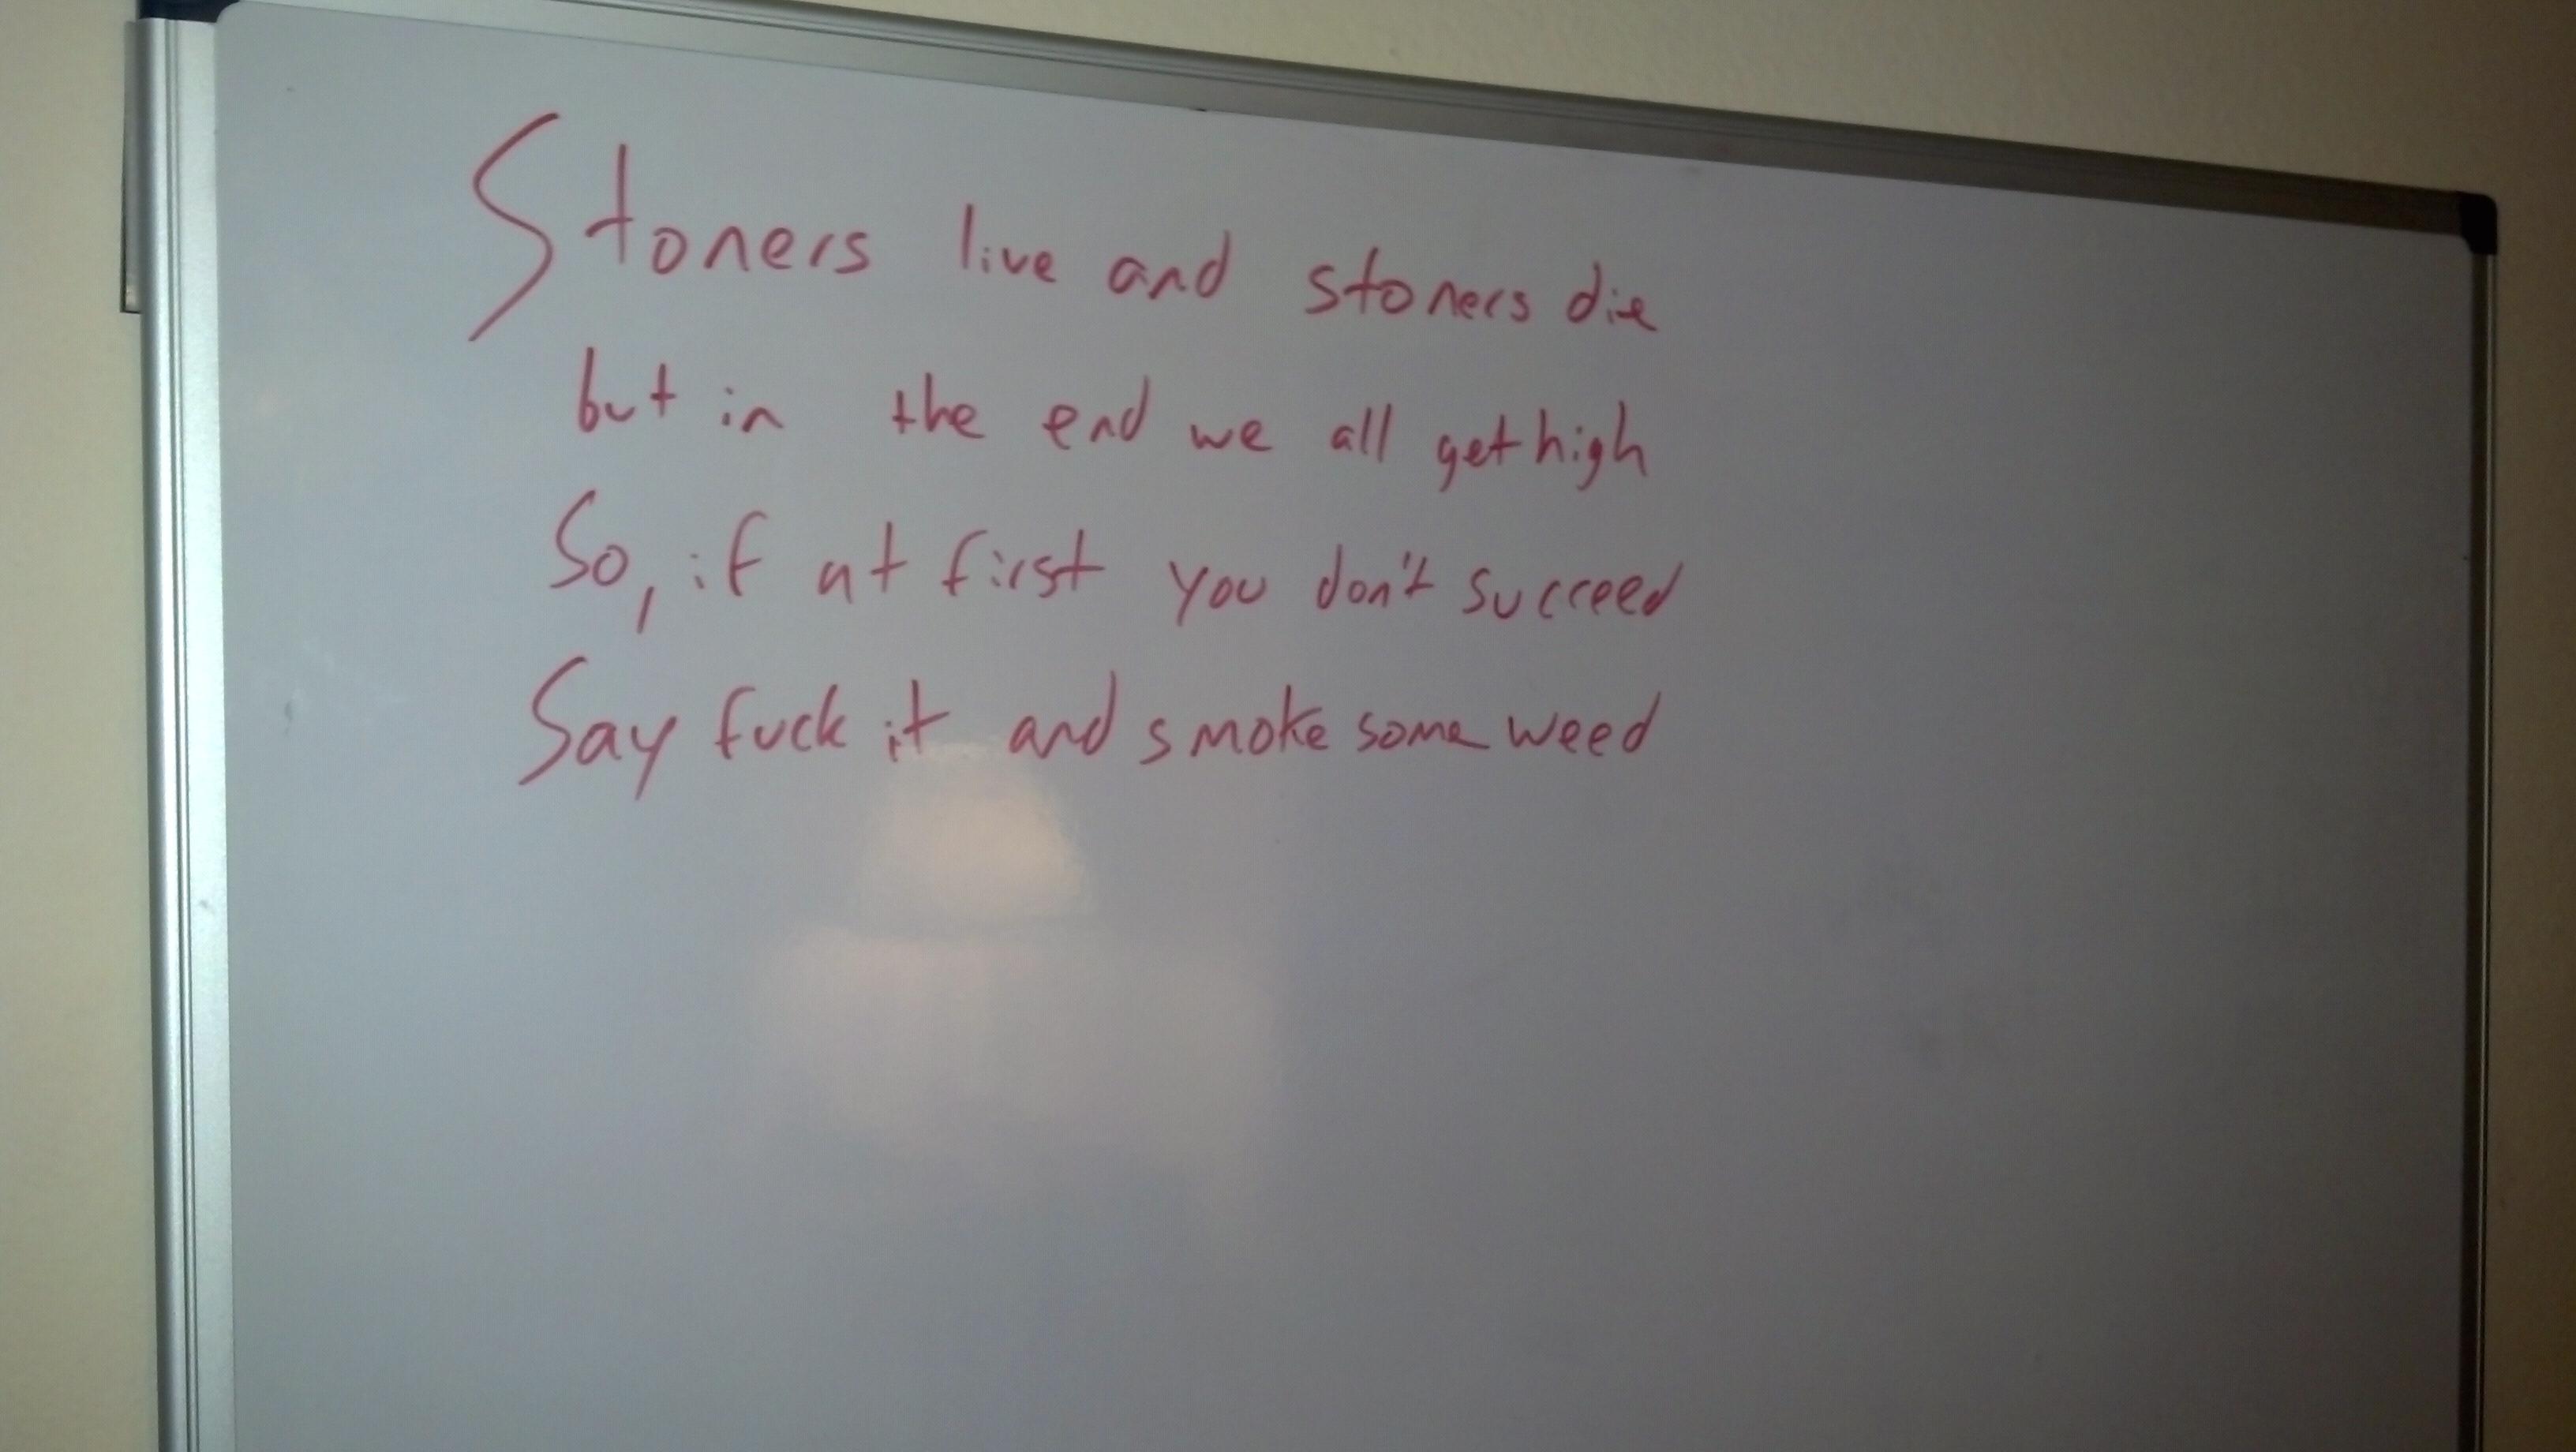 Stoners live and stoners die
but in the end we all get high
So, if at first you don't succeed
Say fuck it and smoke some weed